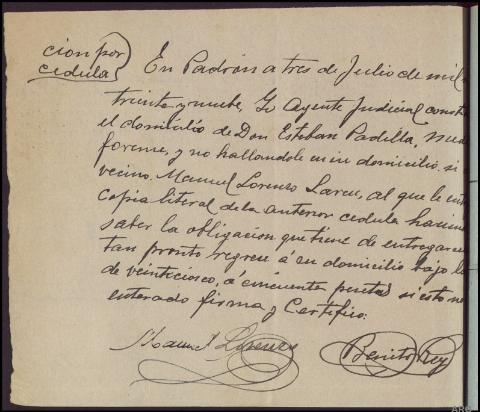 cion por
cedula
En Padrón a tres de Julio de mil
treinta y nueve, Yo Agente Judicial const
el domicilio de Don Esteban Padilla,
forense, y no hallandole en su domicilio si
vecino. Manuel Lorenzo Lareu, al que le ent
copia literal de la anterior cedula hacien
saber la obligacion que tiene de entregar
tan pronto regrese á su domicilio bajo la
de veinticinco, á cincuenta pesetas si esto no
enterado firma, y Certifico:
Manuel Lorenzo
Benito Rey